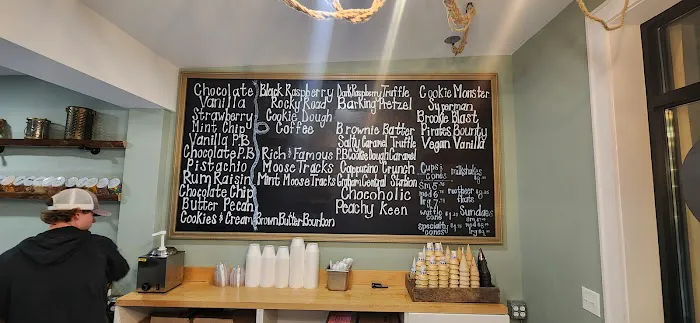 Chocolate
Vanilla
Strawberry
Mint Chip
Vanilla P.B.
Chocolate P.B.
Pistachio
Rum Raisin
Chocolate Chip
Butter Pecan
Cookies & Cream
Black Raspberry
Rocky Road
Cookie Dough
Coffee
Rich & Famous
Moose Tracks
Mint Moose Tracks
Brown Butter Bourbon
Dark Raspberry Truffle
Barking Pretzel
Brownie Batter
Salty Caramel Truffle
P.B. Cookie Dough Caramel
Cappucino Crunch
Graham Central Station
Chocoholic
Peachy Keen
Cookie Monster
Superman
Brookie Blast
Pirates Bounty
Vegan Vanilla
Cups &
cones
sm
med
lrg
waffle
cone
specialty
cones
milkshakes
rootbeer
float
Sundaes
sm
med
lrg